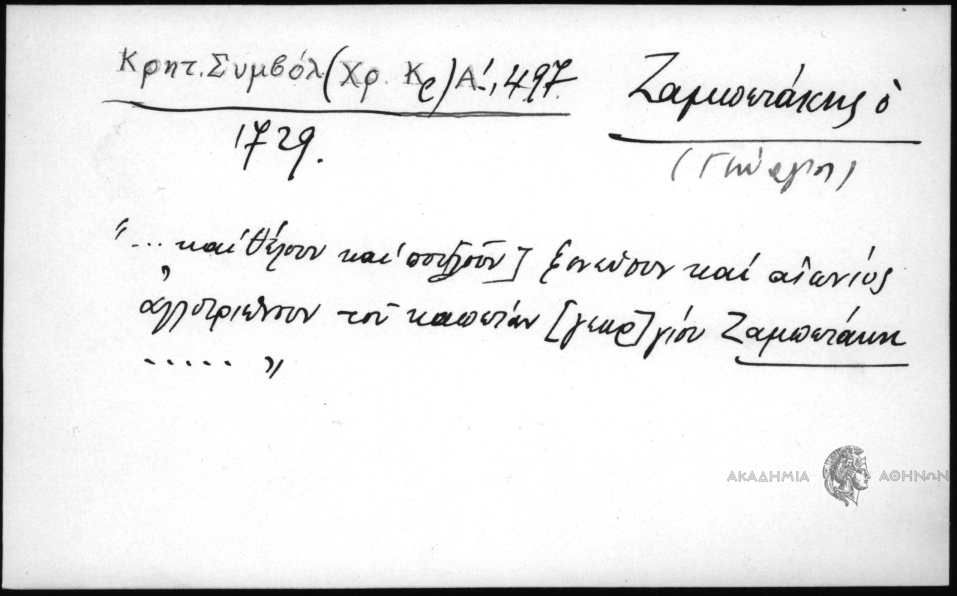 Κρητ. Συμβόλ (Χρ. Κρ) Α΄., 497.
Ζαμπετάκης ὁ
1729.
(Γιώργης)
"... καί θέλουν καί πουλοῦν] ξενεύουν καί αἰωνίος
ἀλλοτριώνουν τοῦ καπετάν [γεωρ]γίου Ζαμπετάκη
..... "
ΑΚΑΔΗΜΙΑ ΑΘΗΝΩΝ